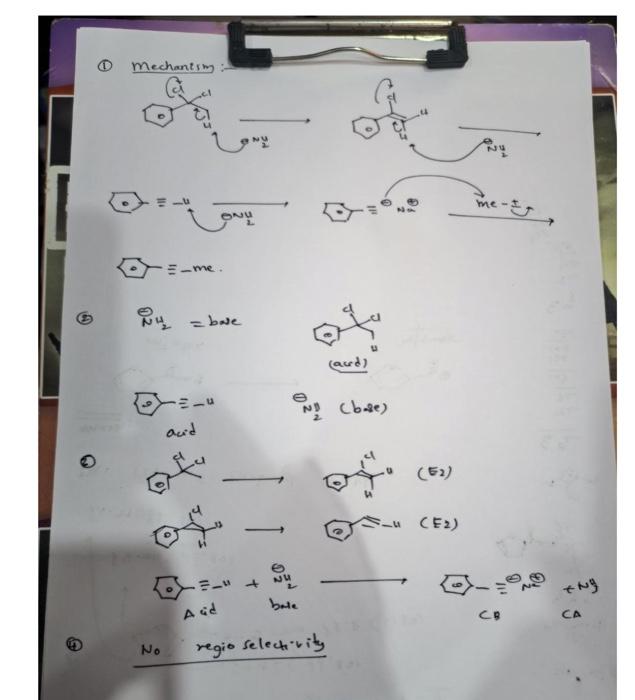 ① Mechanism :-
Cl Cl H ⊖NH2
Cl H H ⊖NH2
≡ -H ⊖NH2
≡ ⊖ Na⊕ me - I
≡ -me.
② ⊖NH2 = base
Cl Cl H
(acid)
≡ -H ⊖NH2 (base)
acid
Cl Cl Cl H H (E2)
Cl H H -H (E2)
≡ -H + ⊖NH2 ≡ ⊖ Na⊕ + NH3
Acid base CB CA
④ No regio selectivity